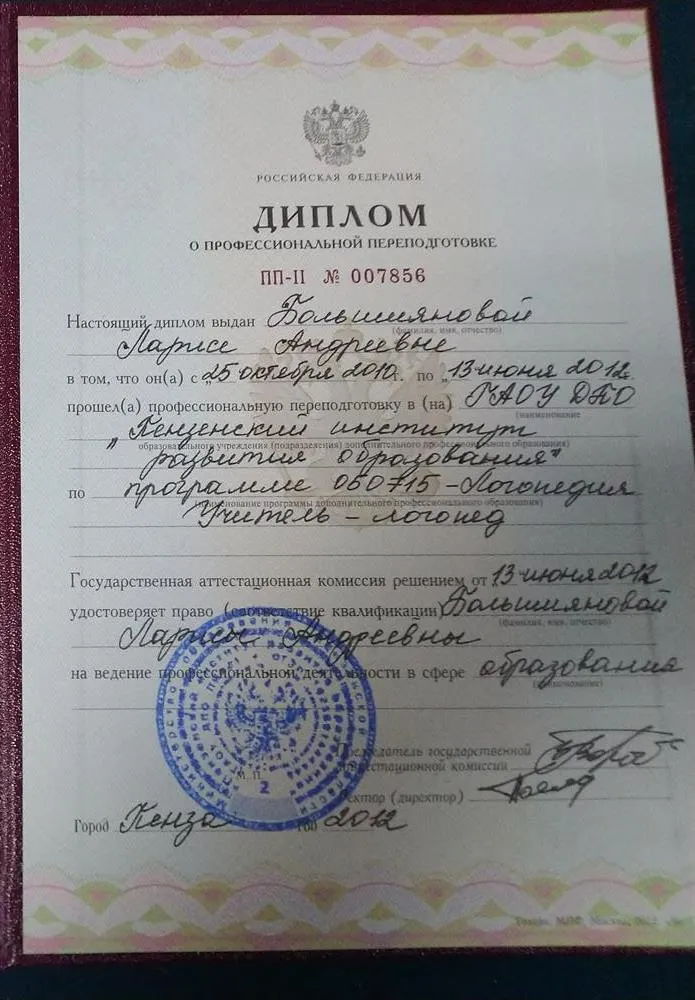 РОССИЙСКАЯ ФЕДЕРАЦИЯ
ДИПЛОМ
О ПРОФЕССИОНАЛЬНОЙ ПЕРЕПОДГОТОВКЕ
ПП-II № 007856
Настоящий диплом выдан Большияновой
(фамилия, имя, отчество)
Ларисе Андреевне
в том, что он(а) с „25 октября 2010г. по „13 июня 2012г.
прошел(а) профессиональную переподготовку в (на) ГАОУ ДПО
(наименование
„Пензенский институт
образовательного учреждения (подразделения) дополнительного профессионального образования)
развития образования"
по программе 050715-Логопедия
(наименование программы дополнительного профессионального образования)
Учитель-логопед
Государственная аттестационная комиссия решением от 13 июня 2012
удостоверяет право (соответствие квалификации) Большияновой
(фамилия, имя, отчество)
Ларисы Андреевны
на ведение профессиональной деятельности в сфере образования
(наименование)
Председатель государственной
аттестационной комиссии
М. П.
2
Ректор (директор)
Город Пенза год 2012